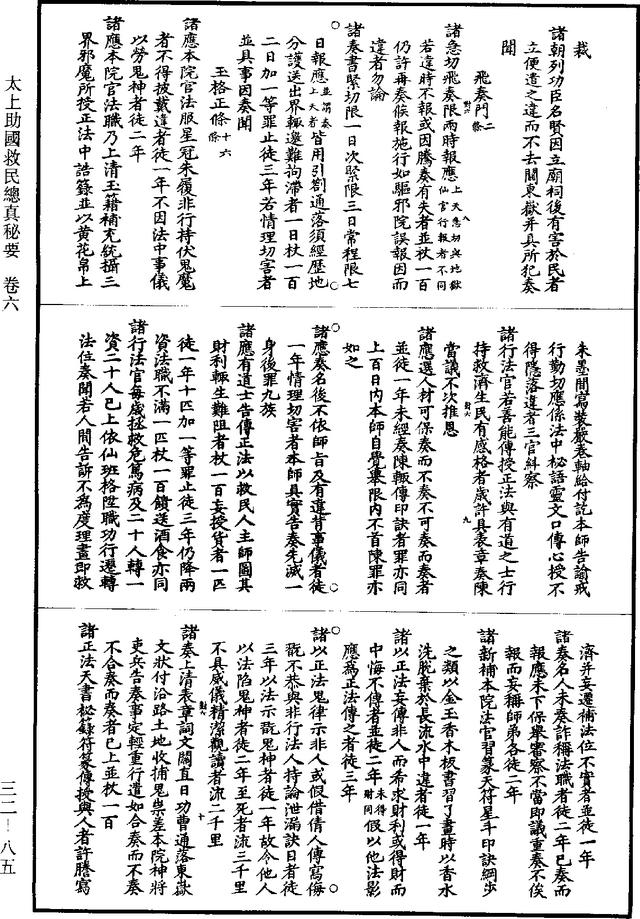 裁
諸朝列功臣名賢因立廟祠後有害於民者
立便遣之違而不去關東嶽并具所犯奏
聞
飛奏門二條
諸急切飛奏限兩時報應上天急切與地獄仙官行報者不同
若違時不報或因騰奏有失者並杖一百
仍許再奏候報施行如驅邪院誤報因而
違者勿論
諸奏書緊切限一日次緊限三日常程限七
日報應並謂奏上天者皆用引劄通落須經歷地
分護送出界輒邀難拘滯者一日杖一百
二日加一等罪止徒三年若情理切害者
並具事因奏聞
玉格正條十六條
諸應本院官法服星冠朱履非行持伏鬼魔
者不得披戴違者徒一年不因法中事儀
以勞鬼神者徒二年
諸應本院官法職乃上清玉籍補充統攝三
界邪魔所授正法中誥籙並以黄花帛上
朱墨間寫裝嚴卷軸給付訖本師告諭戒
行動切應係法中秘語靈文口傳心授不
得隱落違者三官糾察
諸行法官若善能傳授正法與有道之士行
持救濟生民有感格者歲許具表章奏陳
當議不次推恩
諸應選人材可保奏而不奏不可奏而奏者
並徒一年未經奏陳輒傳印訣者罪亦同
上百日内本師自覺舉限内不首陳罪亦
如之
諸應奏名後不依師旨及有違背事儀者徒
一年情理切害者本師具實告奏先滅一
身後罪九族
諸應有道士告傳正法以救民人主師圖其
財利輒生難阻者杖一百妄授貨者一匹
徒一年十匹加一等罪止徒三年仍降兩
資法職不滿一匹杖一百饋送酒食亦同
諸行法官每歲拯救危篤病及二十人轉一
資二十人已上依仙班格陞職功行遷轉
法位奏聞若人間告訴不爲度理畫即救
濟并妄遷補法位不實者並徒一年
諸奏名人未奏詐稱法職者徒二年已奏而
報應未下保舉審察不當即議重奏不俟
報而妄稱師弟各徒二年
諸新補本院法官習篆天符星斗印訣綱步
之類以金玉香木板書習了畫時以香水
洗脱棄於長流水中違者徒一年
諸以正法妄傳非人而希求財利或得財而
中悔不傳者並徒二年未得財同假以他法影
應爲正法傳之者徒三年
諸以正法鬼律示非人或假借倩人傳寫侮
翫不恭與非行法人持論泄漏訣目者徒
三年以法示翫鬼神者徒一年故令他人
以法陷鬼神者徒二年至死者流三千里
不具威儀精潔觀讀者流二千里
諸奏上清表章詞文關直日功曹通落東嶽
文狀付沿路土地收捕鬼祟差本院神將
吏兵告奏事定輕重行遣如合奏而不奏
不合奏而奏者已上並杖一百
諸正法天書祕籙符篆傳授與人者許謄寫
太上助國救民總真秘要 卷六
三二—八五